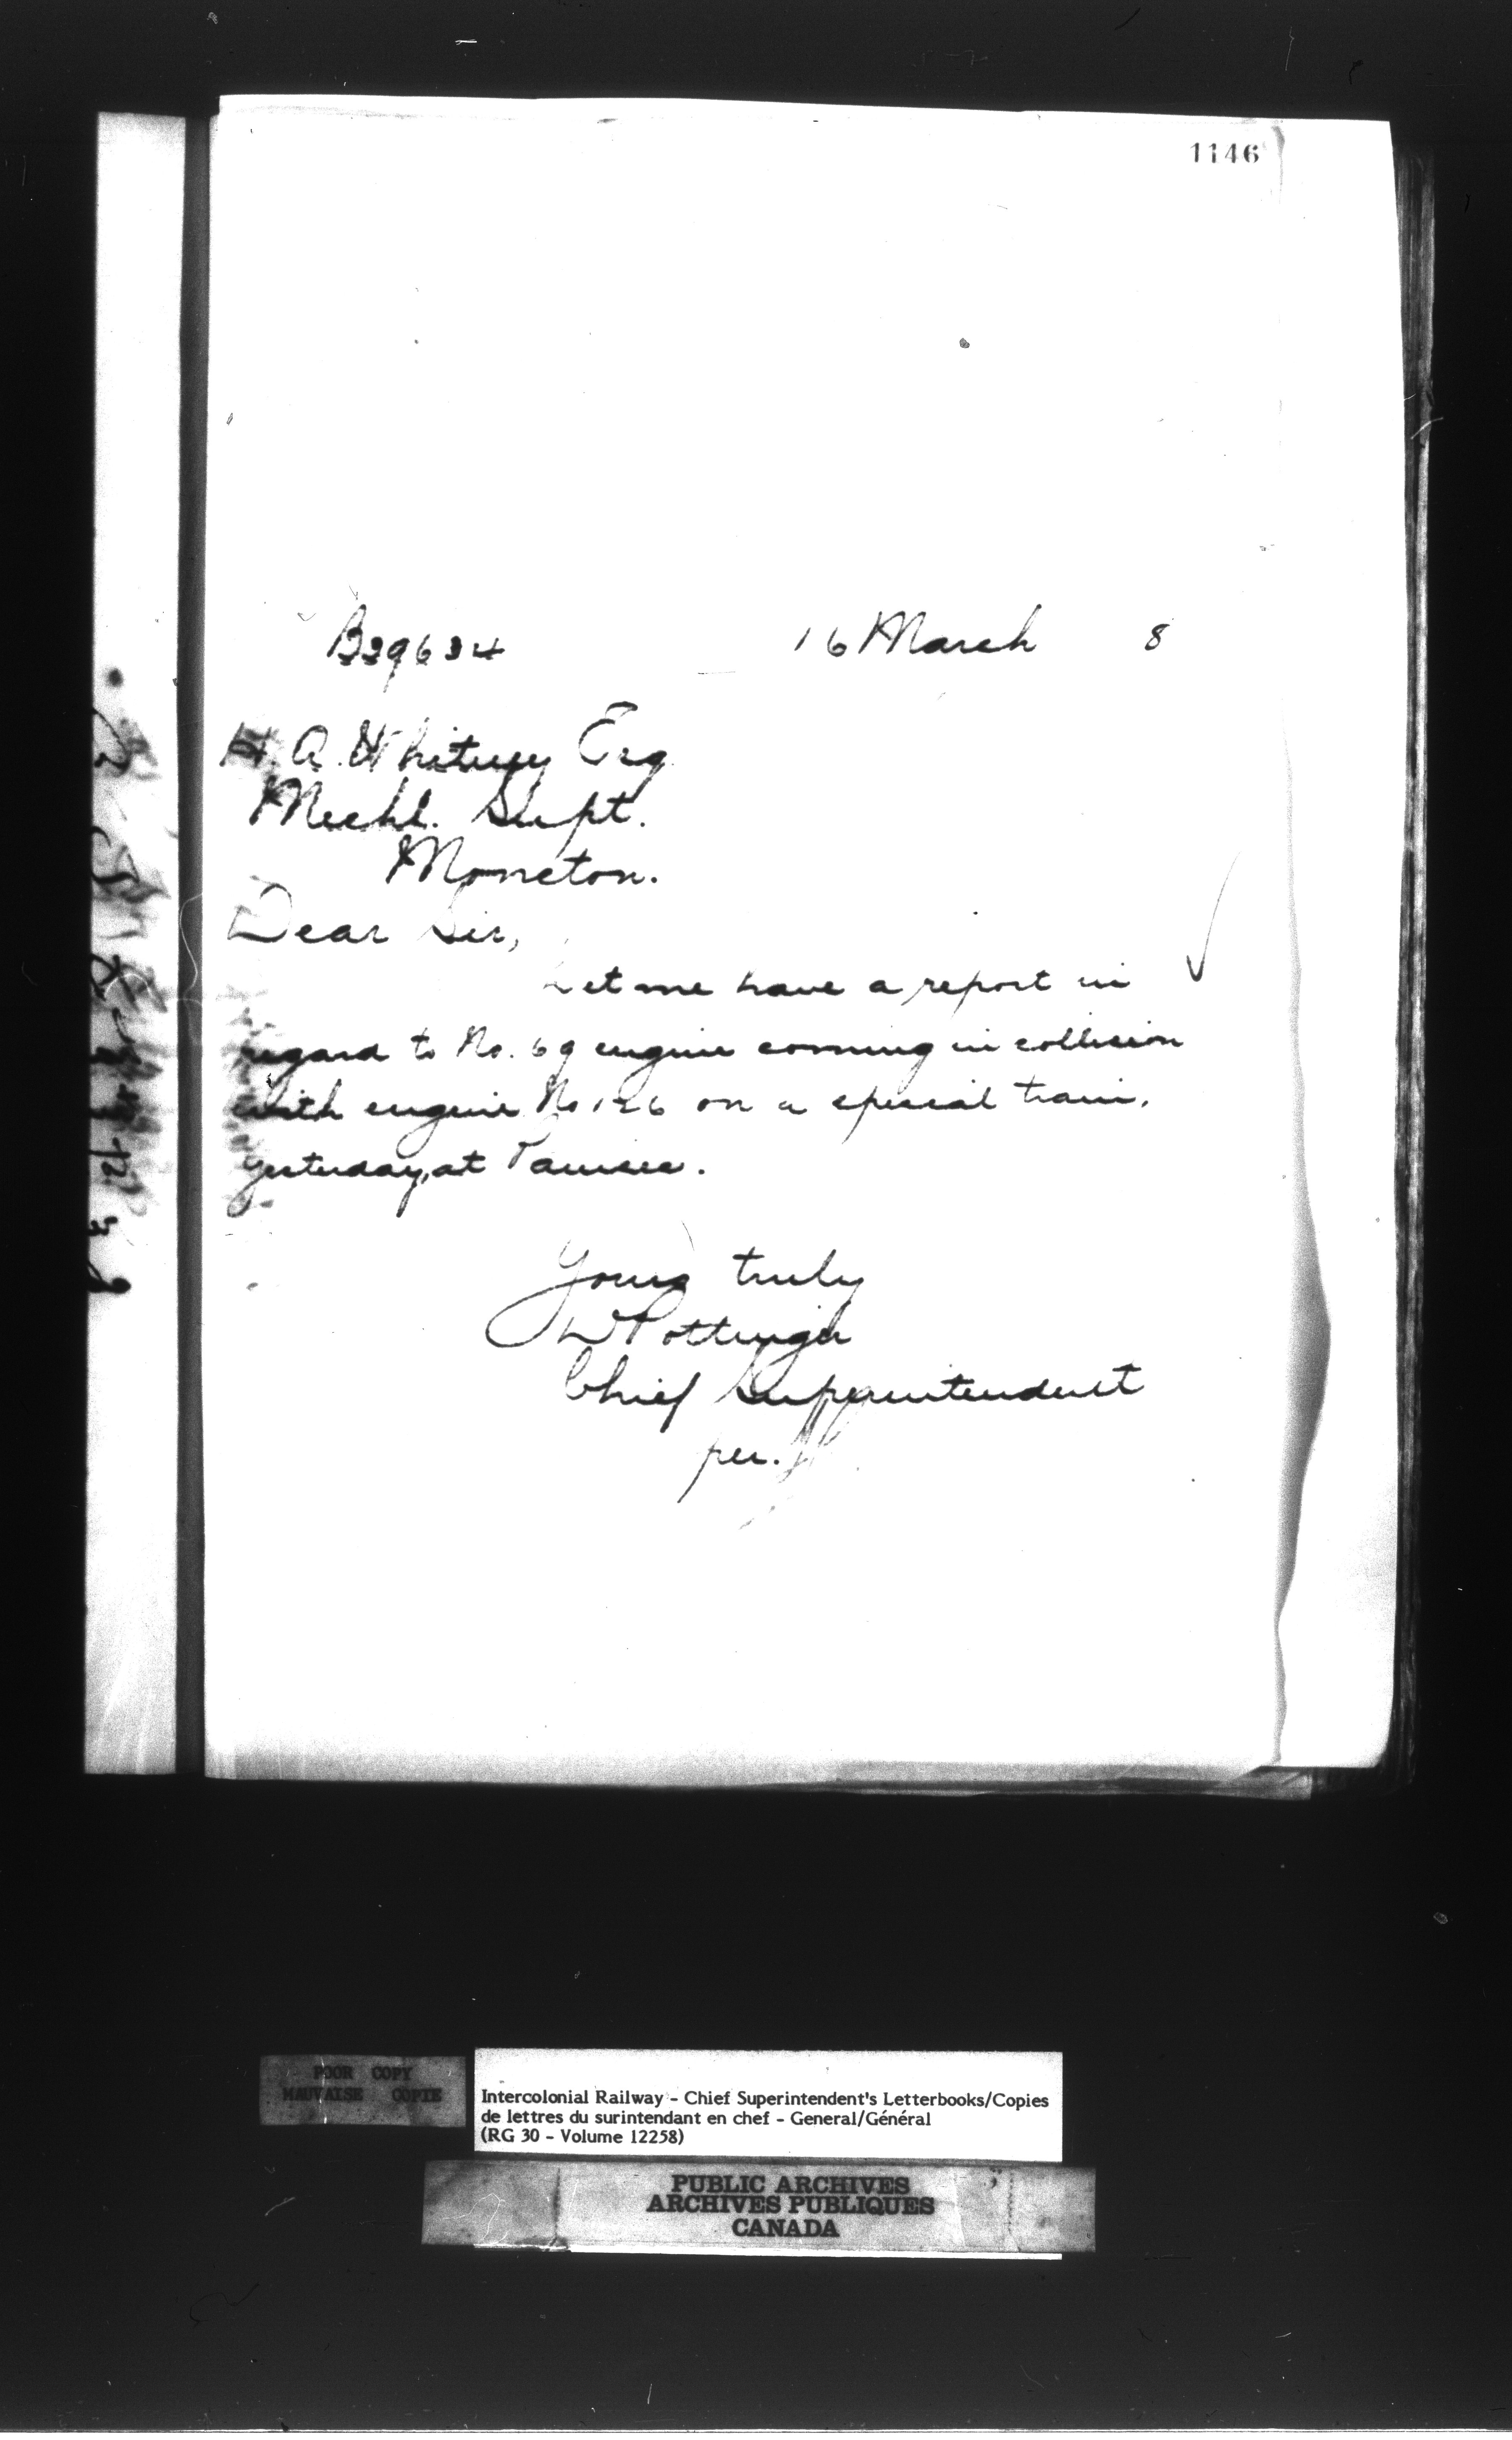 1146
B39634 16 March 8
H. A. Whitney Esq
Mechl. Supt.
Moncton.
Dear Sir,
Let me have a report in
regard to No. 69 engine coming in collision
with engine No 126 on a special train,
yesterday, at Painsec.
Yours truly
D Pottinger
Chief Superintendent
per.
POOR COPY
MAUVAISE COPIE
Intercolonial Railway - Chief Superintendent's Letterbooks/Copies
de lettres du surintendant en chef - General/Général
(RG 30 - Volume 12258)
PUBLIC ARCHIVES
ARCHIVES PUBLIQUES
CANADA